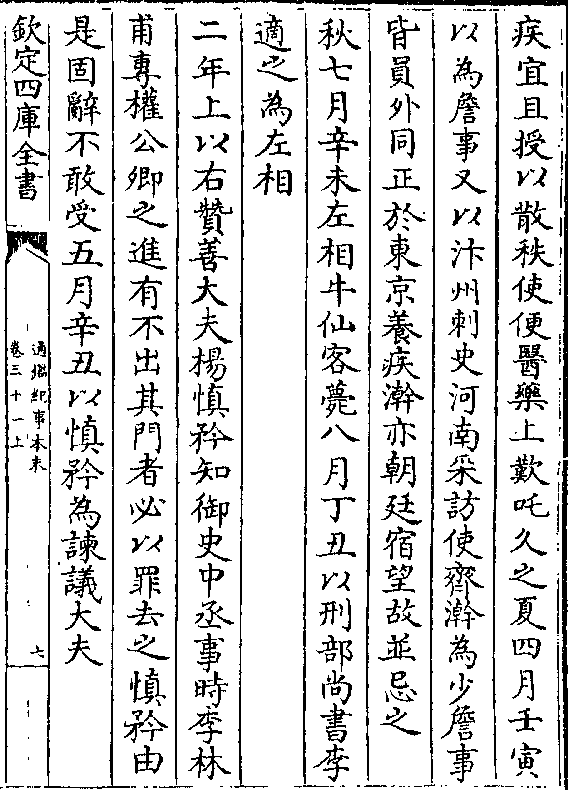 疾宜且授以散秩使便醫藥上歎吒久之夏四月壬寅
以為詹事又以汴州刺史河南采訪使齊澣為少詹事
皆員外同正於東京養疾澣亦朝廷宿望故並忌之
秋七月辛未左相牛仙客薨八月丁丑以刑部尚書李
適之為左相
二年上以右贊善大夫楊慎矜知御史中丞事時李林
甫專權公卿之進有不出其門者必以罪去之慎矜由
是固辭不敢受五月辛丑以慎矜為諫議大夫
欽定四庫全書
通鑑紀事本末
卷三十一上
七